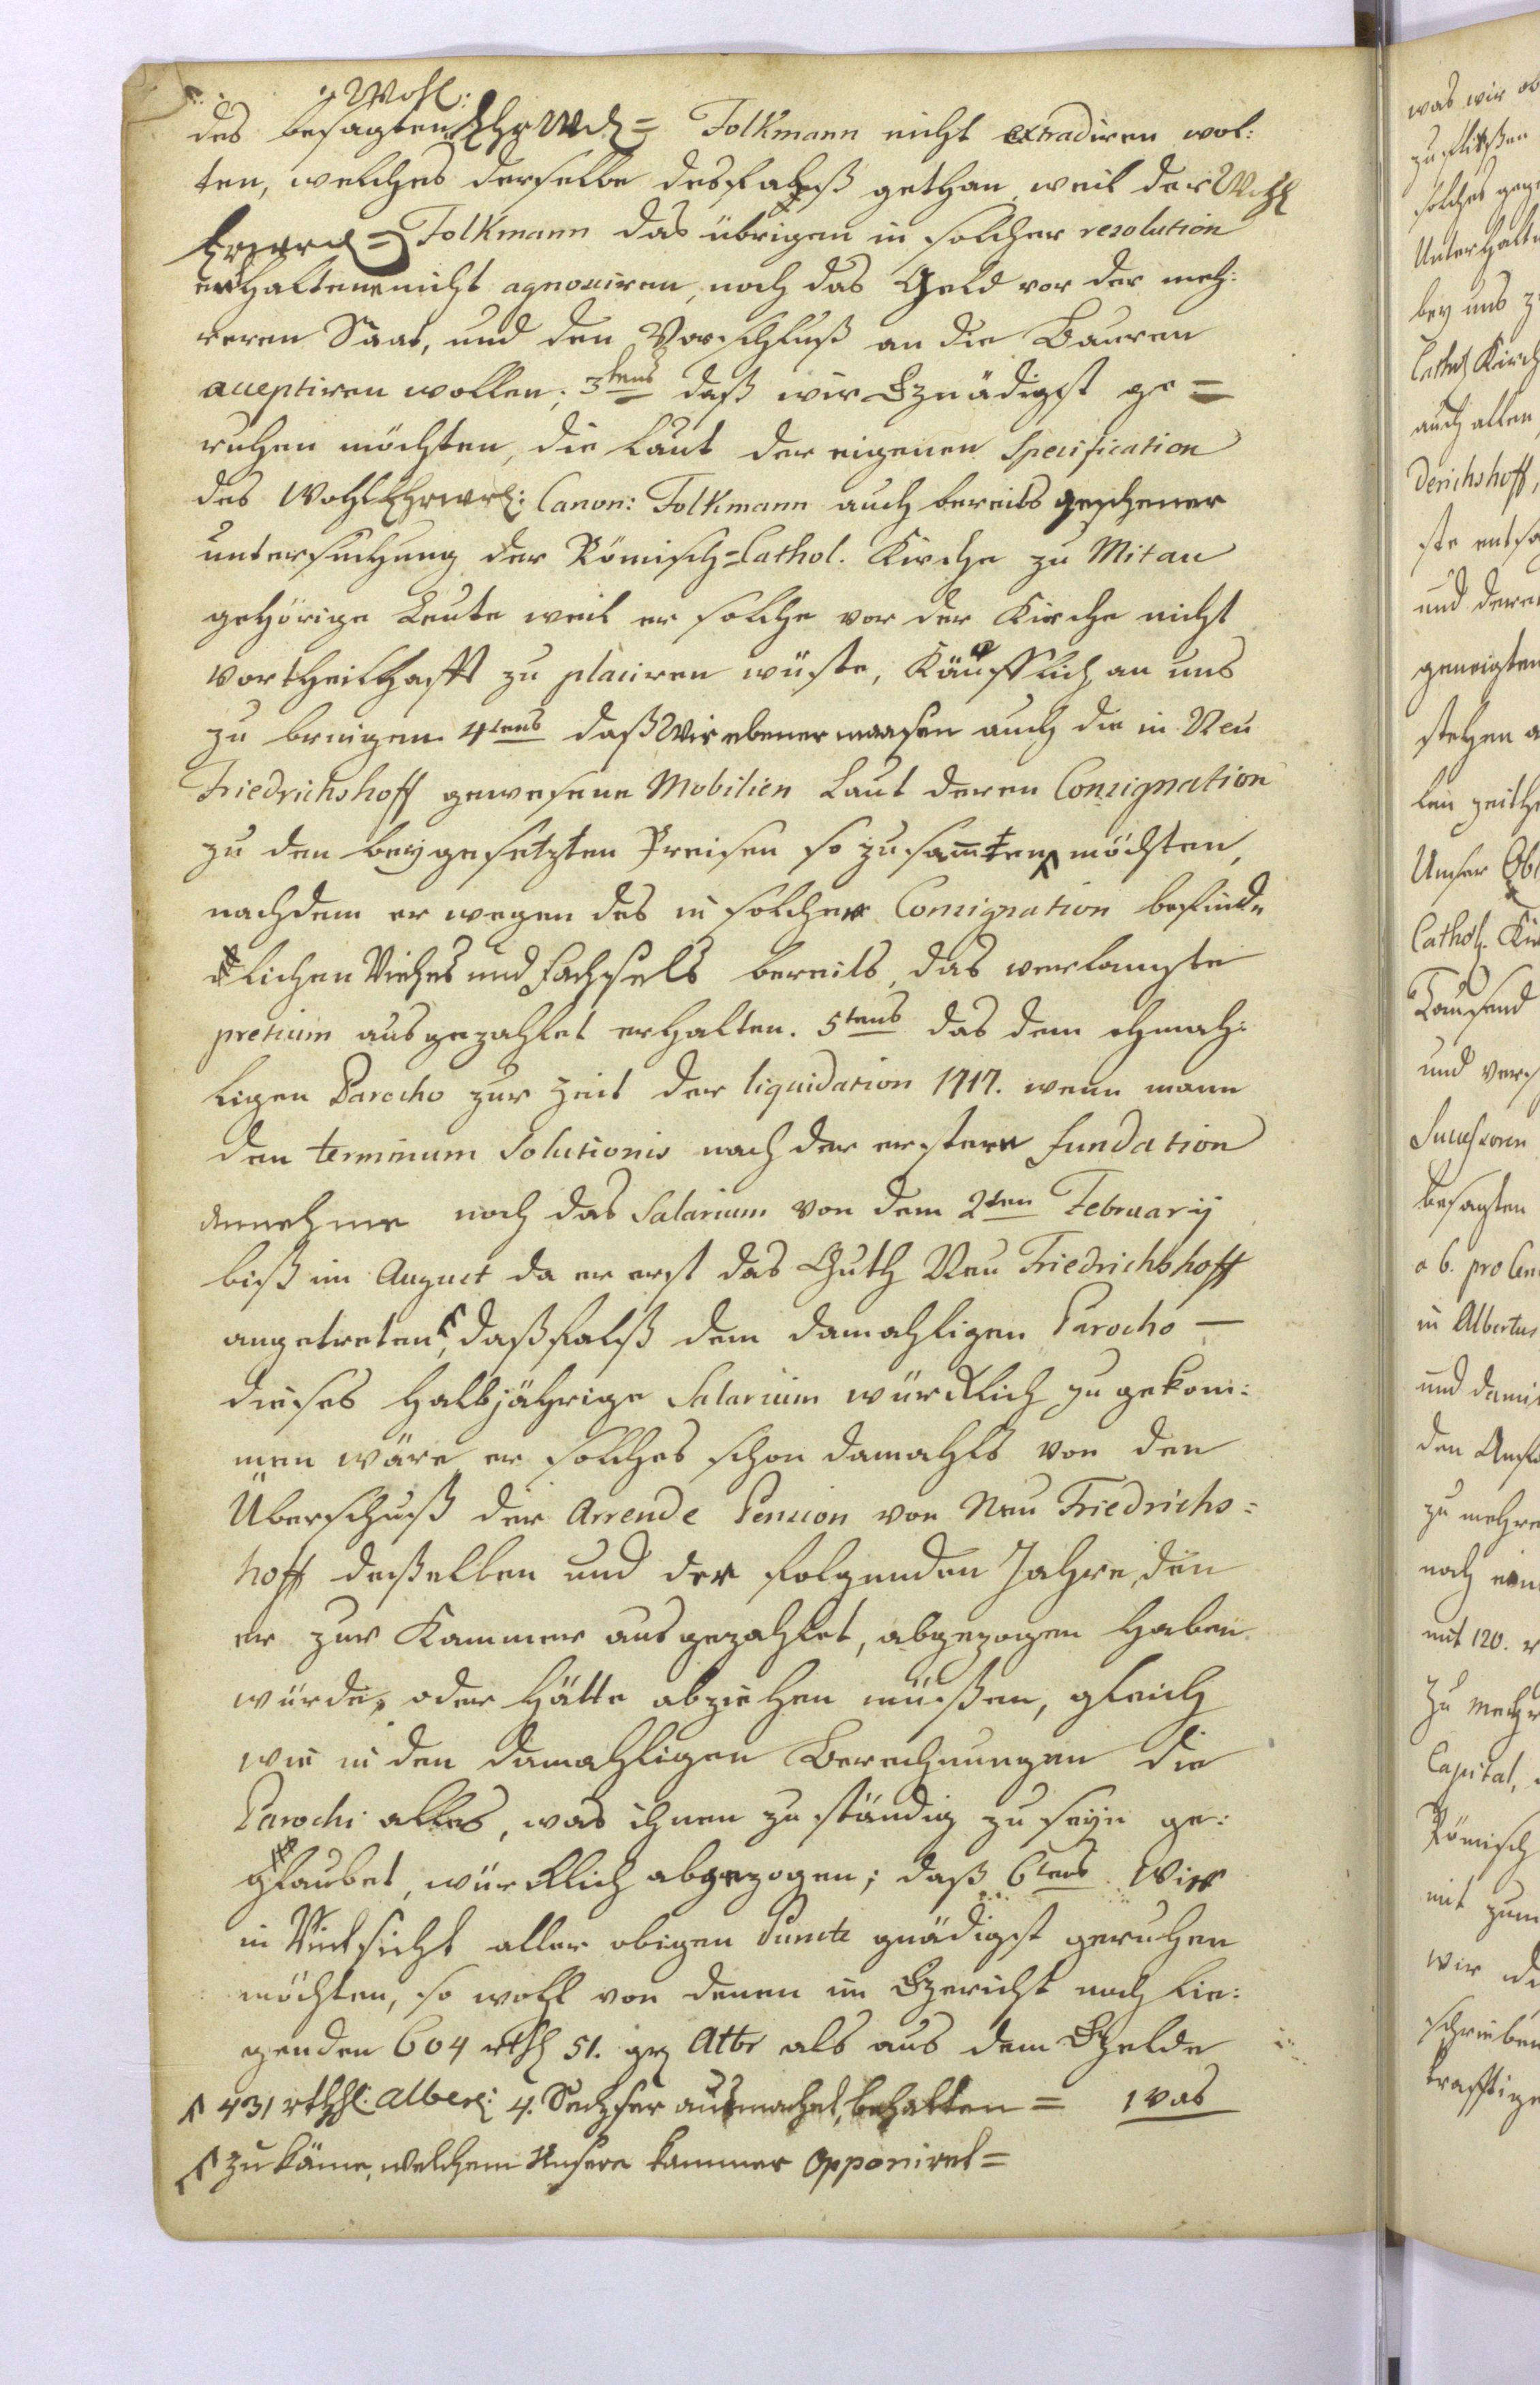 Wohl:
des besagten Ehrwd= Folkmann nicht extradiren wol:
ten, welches derselbe desfalß gethan, weil der Wohl
Ehrwrd= Folkmann das übrigen in solcher resolution
enthaltene nicht agnosciren, noch das Geld vor der meh:
reren Saat, und den Vorschuß an die Bauren
acceptiren wollen; 3tens daß wir Gnädigst ge=
ruhen möchten, die Laut der eigenen Specification
des WohlEhrwrd: Canon: Folkmann auch bereits geschener
untersuchung der Römisch=Cathol. Kirche zu Mitau
gehörige Leute weil er solche vor der Kirche nicht
vortheilhafft zu placiren wüste, Käufflich an uns
zu bringen. 4tens daß Wir ebenermaasen auch die in Neu
Friedrichshoff gewesene Mobilien Laut deren Consignation
zu den beygesetzten Preisen so zusammen möchten,
nachdem er wegen des in solcher Consignation befind„
lichen Viehes und Fachsels bereits, das verlangte
pretium ausgezahlet erhalten. 5tens das dem ehmah:
ligen Parocho zur Zeit der liquidation 1717. wenn mann
den terminum Solutionis nach der erstern fundation
annehme noch das Salarium von dem 2ten February
biß im August da er erst das Guth Neu Friedrichshoff
angetreten, daßfalß dem damahligen Parocho —
dieses halbjährige Salarium würcklich zu gekom:
men wäre er solches schon damahls von den
Überschuß der Arrende Pension von Neu Friedrichs=
hoff deßelben und der folgenden Jahre, den
er zur Kammer ausgezahlet, abgezogen haben
würde, oder hätte abziehen müßen, gleich
wie in den damahligen Berechnungen die
Parochi alles, was ihnen zu ständig zu seyn ge:
glaubet, würcklich abgezogen; daß 6tens Wir
in Rücksicht aller obigen Puncte gnädigst geruhen
möchten, so wohl von denen im Gericht noch lie:
genden 604 rthl 51. gr Albr als aus dem Gelde
431 rthl: Albert: 4. Sechser ausmachet, behalten = 1 was
zu käme, welchem Unsere kammer Opponiret=
was wir ob
zuflißen
solches gege
Unterhalt
bey uns z
Cathol Kirch
auch allen
derichshoff,
ste entsa
und deren
geneigten
stehen a
lein zeithe
Unser Ob
Cathol. Kir
Tausend
und vers
Successoren
besagten
a 6. pro Cen
in Albertus
und damit
den Ansp
zu mehre
noch ein
mit 120. r
zu mehr
Capital,
Römisch
mit zum
wir
schrieben
krafftige